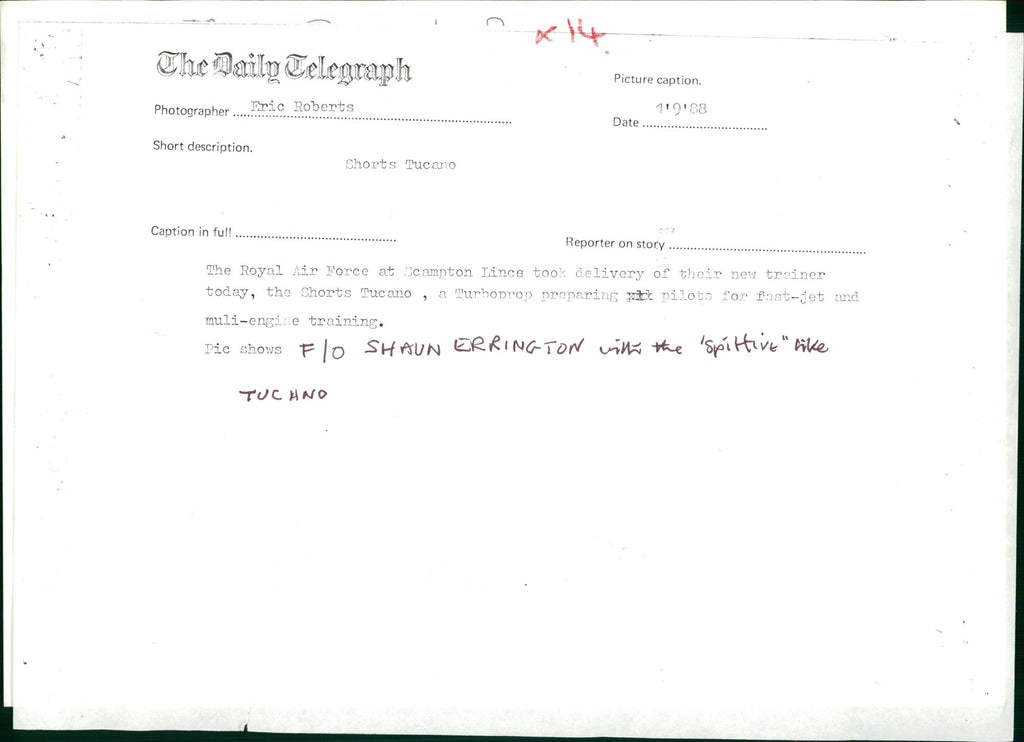 x 14.
The Daily Telegraph
Picture caption.
Photographer .... Eric Roberts
1'9'88
Date ....
Short description.
Shorts Tucano
Caption in full ....
Reporter on story ....
The Royal Air Force at Scampton Lincs took delivery of their new trainer
today, the Shorts Tucano , a Turboprop preparing pilots for fast-jet and
muli-engine training.
Pic shows F/O SHAUN ERRINGTON with the 'Spitfire" like
TUCANO